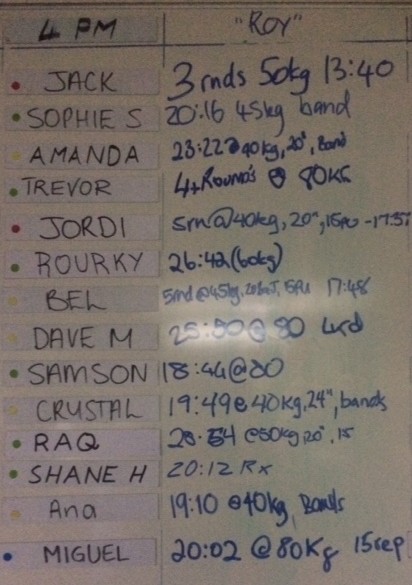 4 PM "ROY"
JACK 3 rnds 50kg 13:40
SOPHIE S 20:16 45kg band
AMANDA 23:22@40kg, 20", Band
TREVOR 4+Rounds @ 80KG
JORDI 5rn@40kg, 20", 15PU -17:57
ROURKY 26:42(60kg)
BEL 5rnd@45kg, 15PU 17:48
DAVE M 25:50@80
SAMSON 18:44@80
CRYSTAL 19:49@40kg, 24", bands
RAQ @50kg 20", 15
SHANE H 20:12 Rx
Ana 19:10 @40kg, Bands
MIGUEL 20:02 @80Kg 15rep